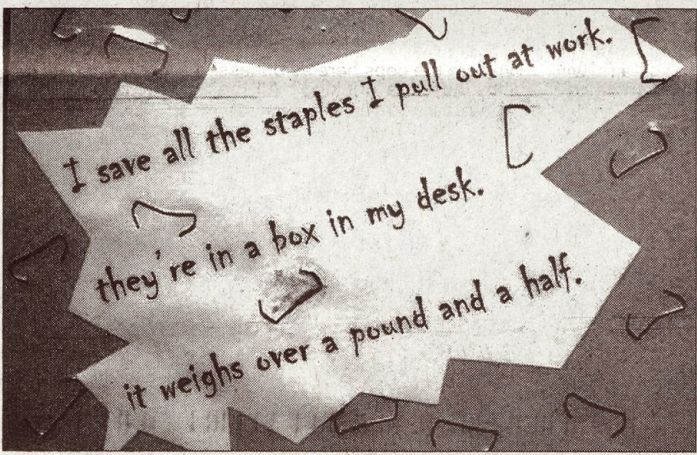 I save all the staples I pull out at work.
they're in a box in my desk.
it weighs over a pound and a half.